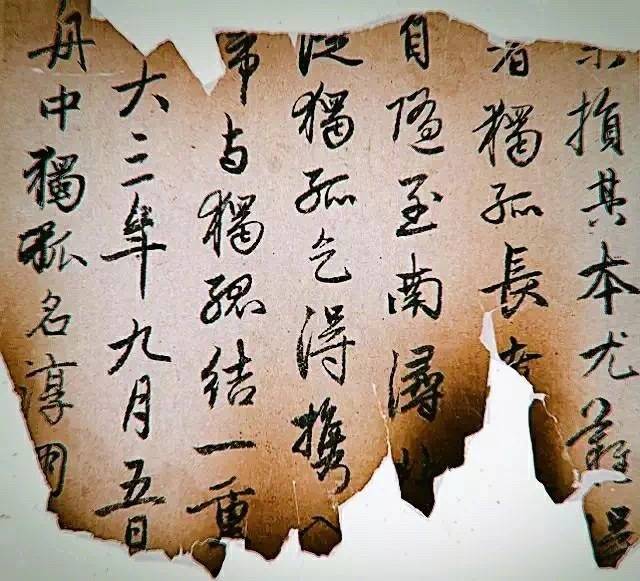 損其本尤難得
者獨孤長
自隨至南潯
從獨孤乞得攜入
歸与獨孤結一重
大三年九月五日
舟中獨孤名淳朋